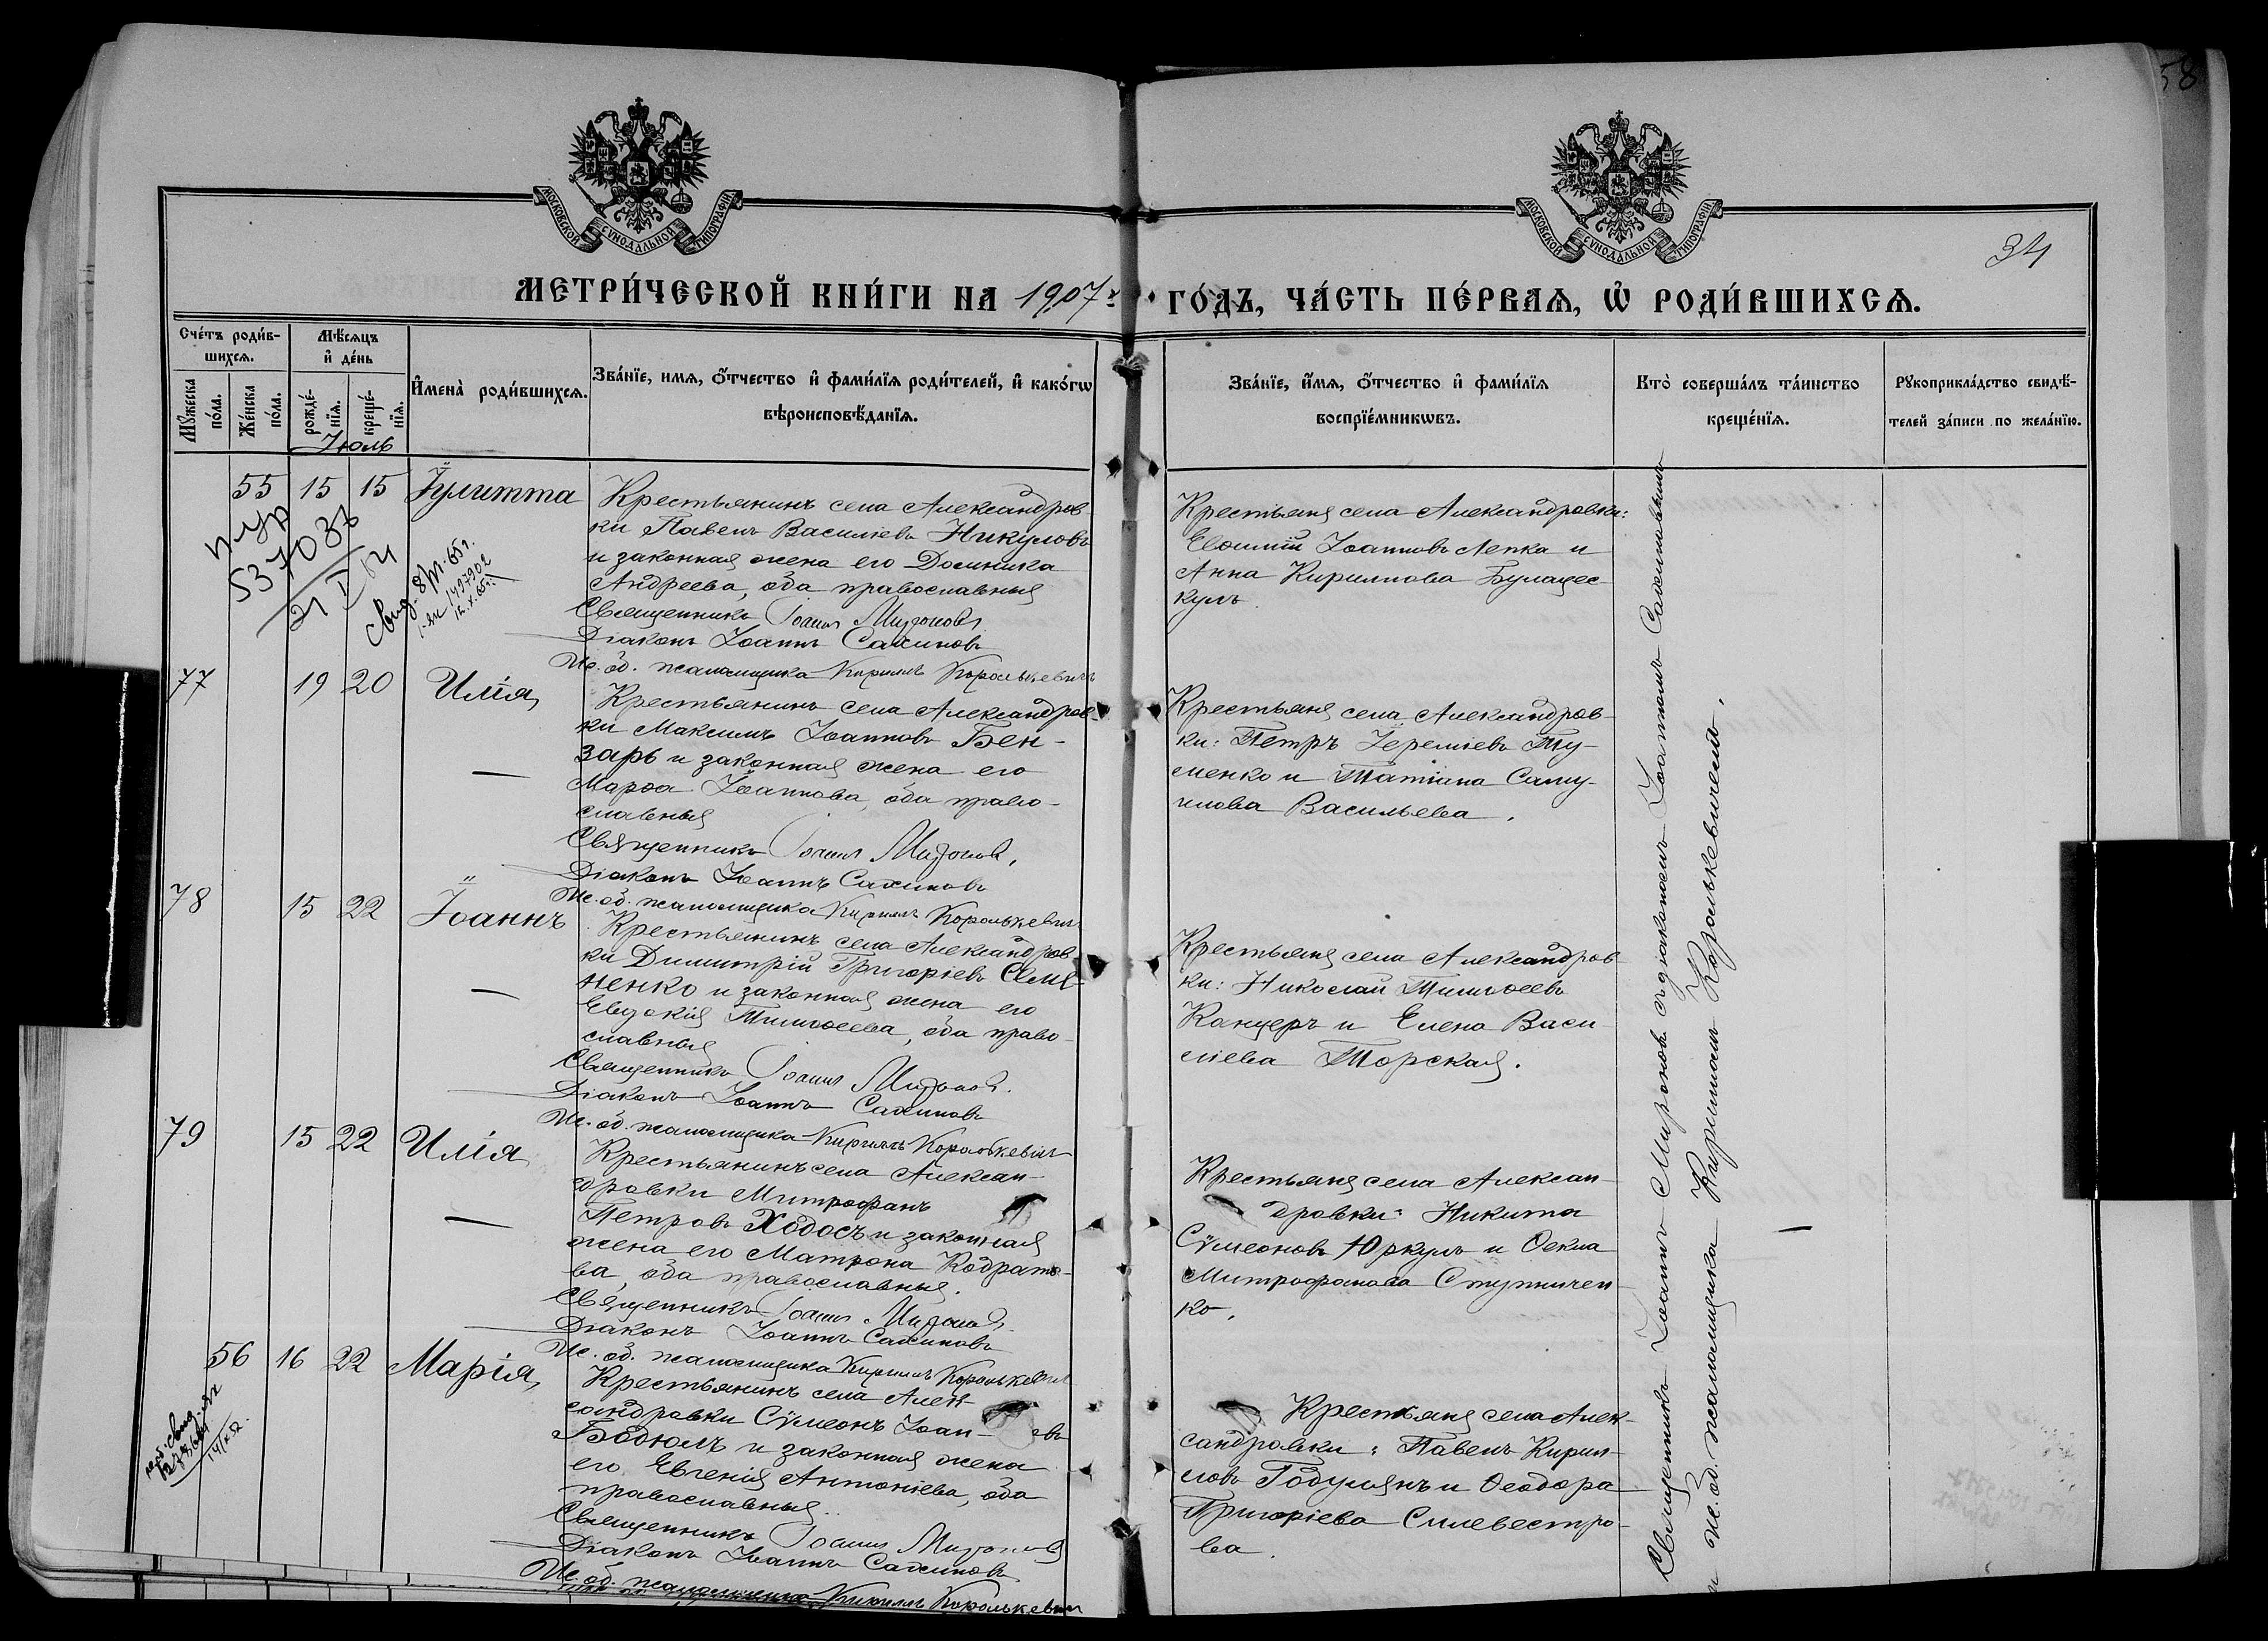 58
МОСКОВСКОЙ СѴНОДАЛЬНОЙ ТИПОГРАФІИ
МОСКОВСКОЙ СѴНОДАЛЬНОЙ ТИПОГРАФІИ
34
МЕТРИ́ЧЕСКОЙ КНИ́ГИ НА 1907 г. ГО́ДЪ, ЧА́СТЬ ПЕ́РВАѦ, Ѡ҆ РОДИ́ВШИХСѦ.
Сче́тъ роди́в-
шихсѧ.
Мꙋ́жеска по́ла.
Же́нска по́ла.
Мѣ́сѧцъ
и҆ де́нь
рожде́-
нїѧ.
креще́-
нїѧ.
И҆мена̀ роди́вшихсѧ.
Зва́нїе, имѧ, ѻ҆́тчество и҆ фами́лїѧ роди́телей, и҆ како́гѡ
вѣроисповѣ́данїѧ.
Зва́нїе, и҆́мѧ, ѻ҆́тчество и҆ фами́лїѧ
воспрїе́мникѡвъ.
Кто̀ соверша́лъ та́инство
креще́нїѧ.
Рꙋкоприкла́дство свидѣ́-
телей за́писи по жела́нїю.
Іюль
55 15 15 Іулитта
Крестьянинъ села Александров
ки Павелъ Василіевъ Никуловъ
и законная жена его Домника
Андреева, оба православныя
Священникъ Іоаннъ Мироновъ
Діаконъ Іоаннъ Сахиновъ
Ис. об. псаломщика Кириллъ Королькевичъ
537036
21 I 64
Свид. 8/VI-65г.
1497902
12.X.65г.
Крестьяне села Александровки:
Евѳимій Іоанновъ Лепка и
Анна Кириллова Булацес
куль.
77 19 20 Илія
Крестьянинъ села Александров-
ки Максимъ Іоанновъ Бен-
зарь и законная жена его
Марѳа Іоаннова, оба право-
славныя
Священникъ Іоаннъ Мироновъ,
Діаконъ Іоаннъ Сахиновъ
Ис. об. псаломщика Кириллъ Королькевичъ
Крестьяне села Александров-
ки: Петръ Іереміевъ Ту-
менко и Татіана Саму-
илова Васильева.
78 15 22 Іоаннъ
Крестьянинъ села Александров
ки Димитрій Григоріевъ Семе-
ненко и законная жена его
Евдокія Тимоѳеева, оба право-
славныя
Священникъ Іоаннъ Мироновъ.
Діаконъ Іоаннъ Сахиновъ
Ис. об. псаломщика Кириллъ Королькевичъ
Крестьяне села Александров-
ки: Николай Тимоѳеевъ
Канцеръ и Елена Васи-
ліева Торская.
79 15 22 Илія
Крестьянинъ села Алексан-
дровки Митрофанъ
Петровъ Ходосъ и законная
жена его Матрона Кодрато-
ва, оба православныя.
Священникъ Іоаннъ Мироновъ
Діаконъ Іоаннъ Сахиновъ
Ис. об. псаломщика Кириллъ Королькевичъ
Крестьяне села Алексан-
дровки: Никита
Сѵмеоновъ Юркулъ и Ѳекла
Митрофанова Ступничен-
ко.
56 16 22 Марія
Крестьянинъ села Алек-
сандровки Сѵмеонъ Іоан- овъ
Бодюлъ и законная жена
его Евгенія Антоніева, оба
православныя.
Священникъ Іоаннъ Мироновъ
Діаконъ Іоаннъ Сахиновъ
Ис. об. псаломщика Кириллъ Королькевичъ
14/IX 52.
Крестьяне села Алек-
сандровки: Павелъ Кирил-
ловъ Годулянъ и Ѳеодора
Григоріева Силевестро-
ва.
Священникъ Іоаннъ Мироновъ съ діакономъ Іоанномъ Сахиновымъ
и ис. об. псаломщика Кирилломъ Королькевичемъ.